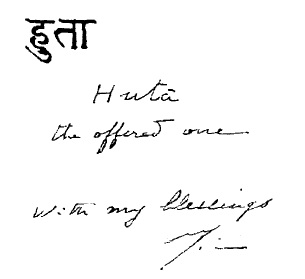 हुता
Hutā
the offered one
with my blessings